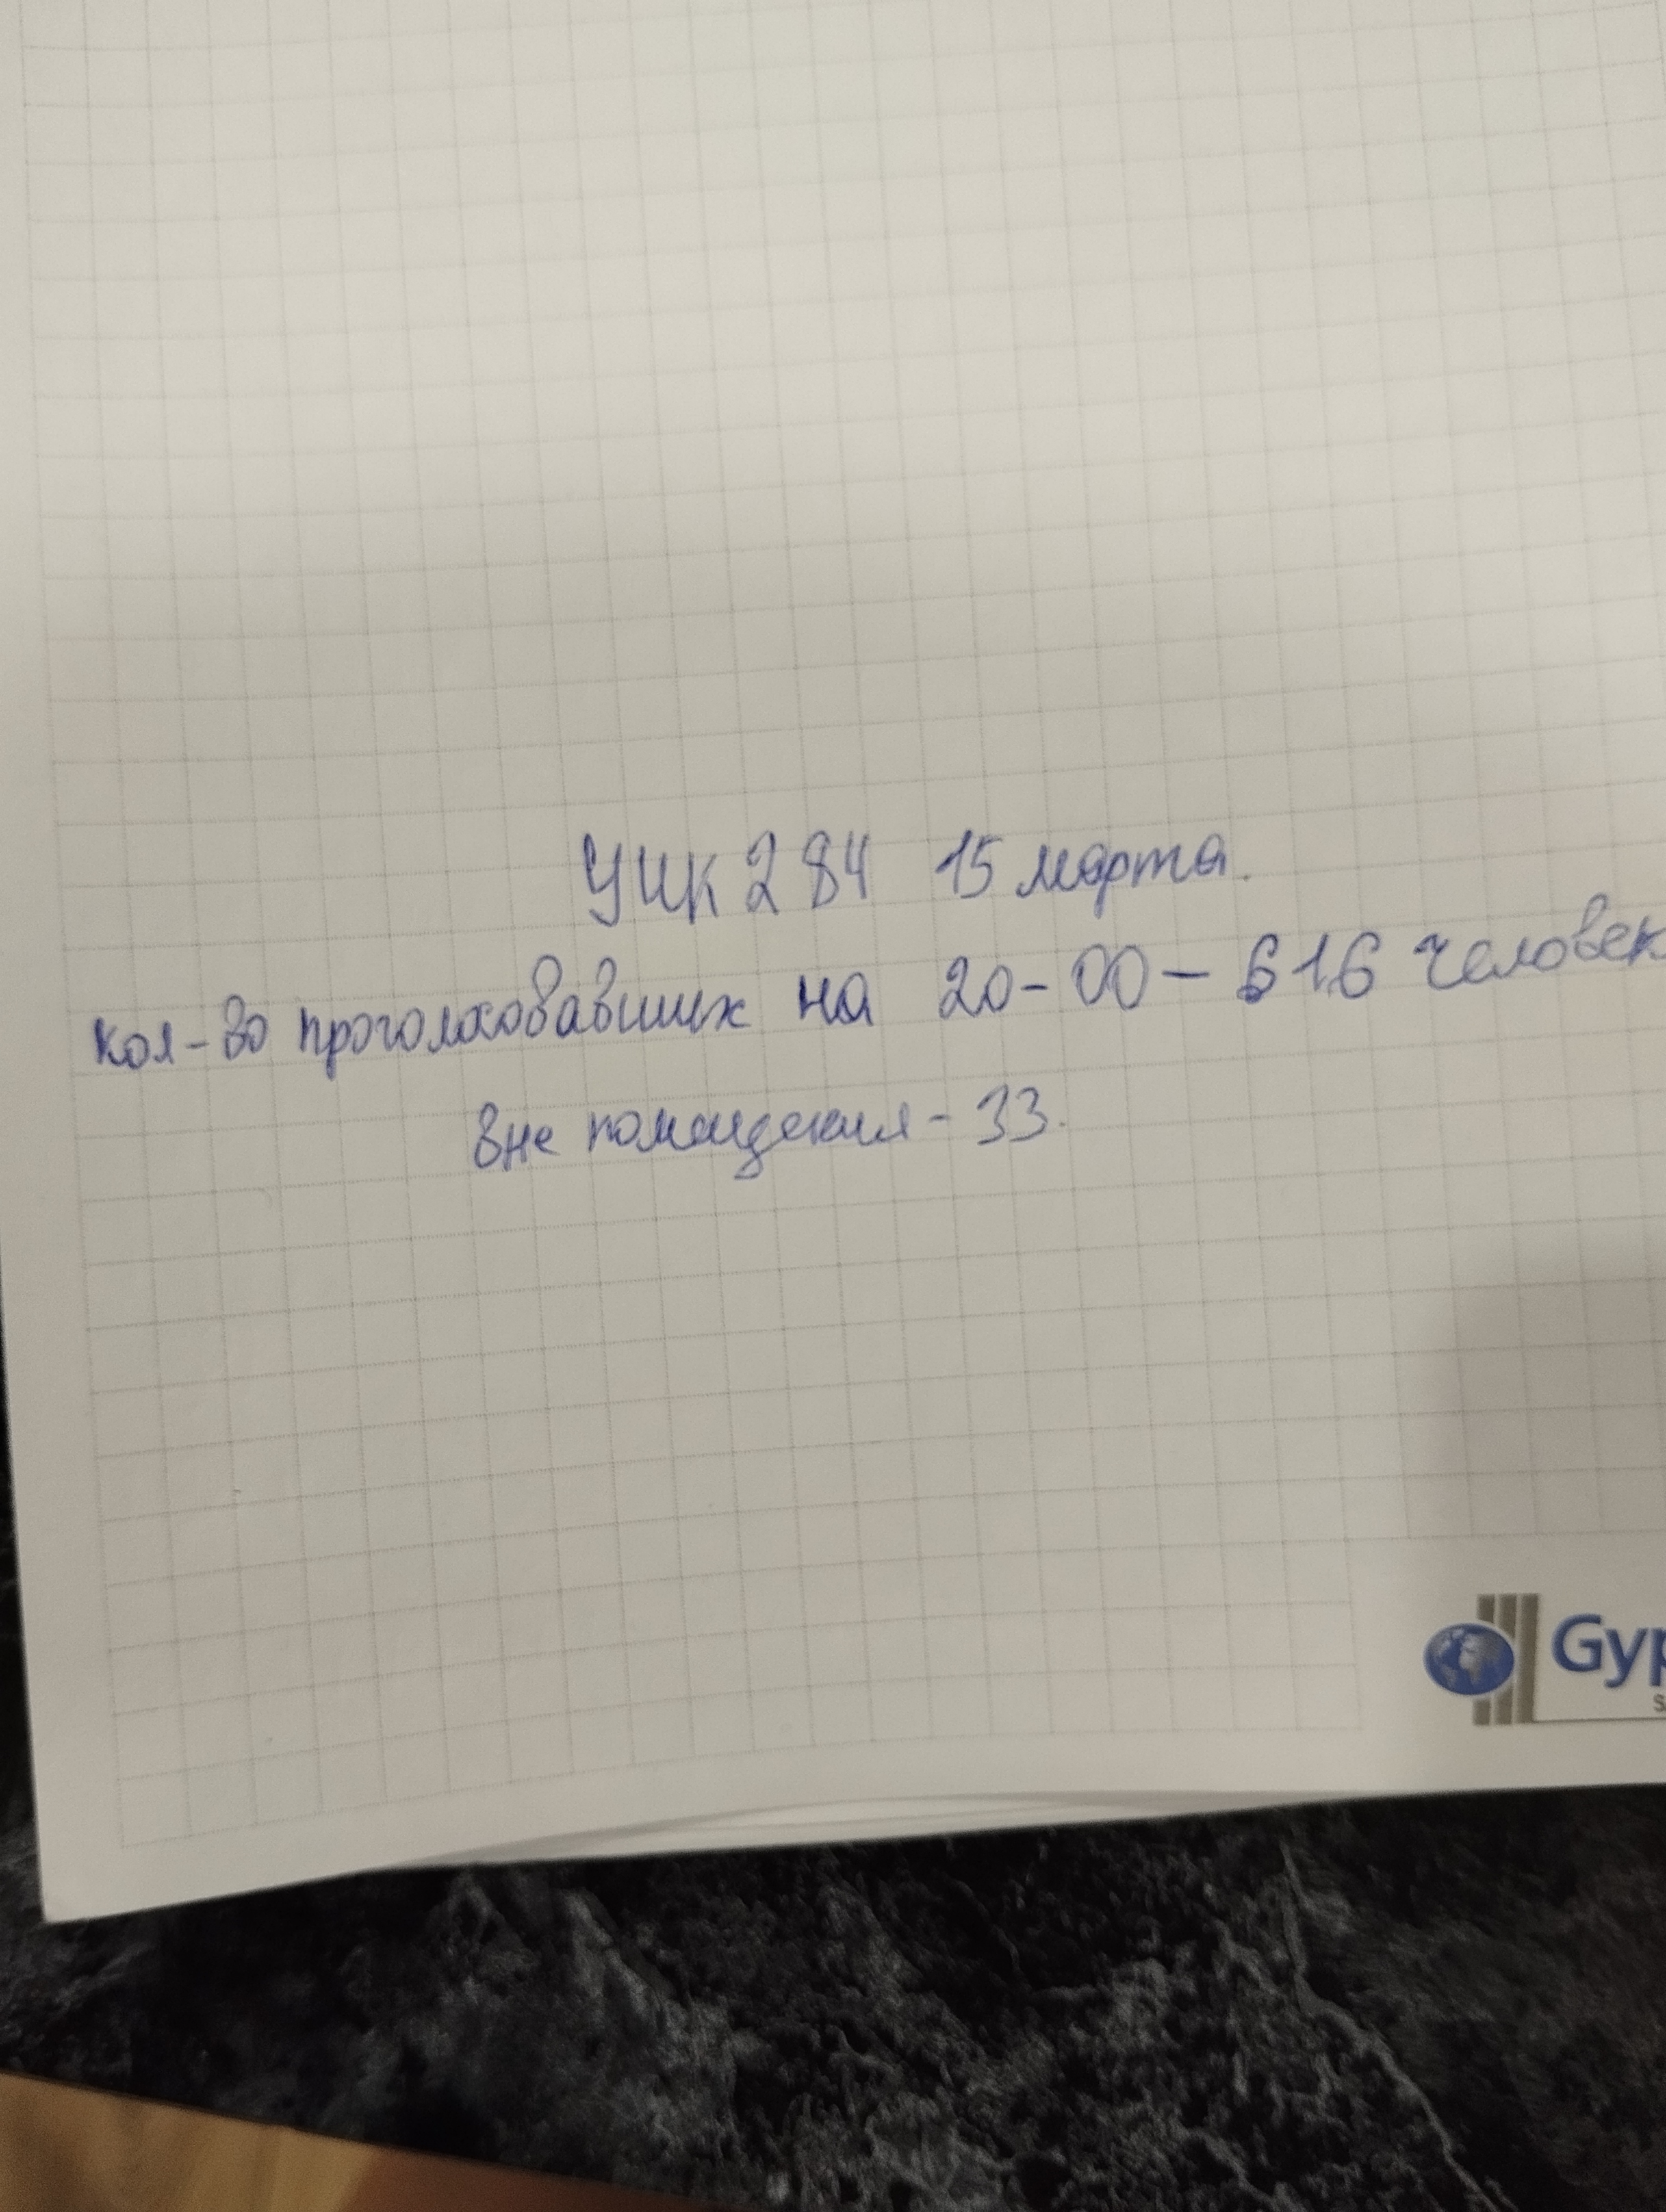 УИК 284 15 марта.
кол-во проголосовавших на 20-00 - 616 человек
вне помещения - 33.
Gyp